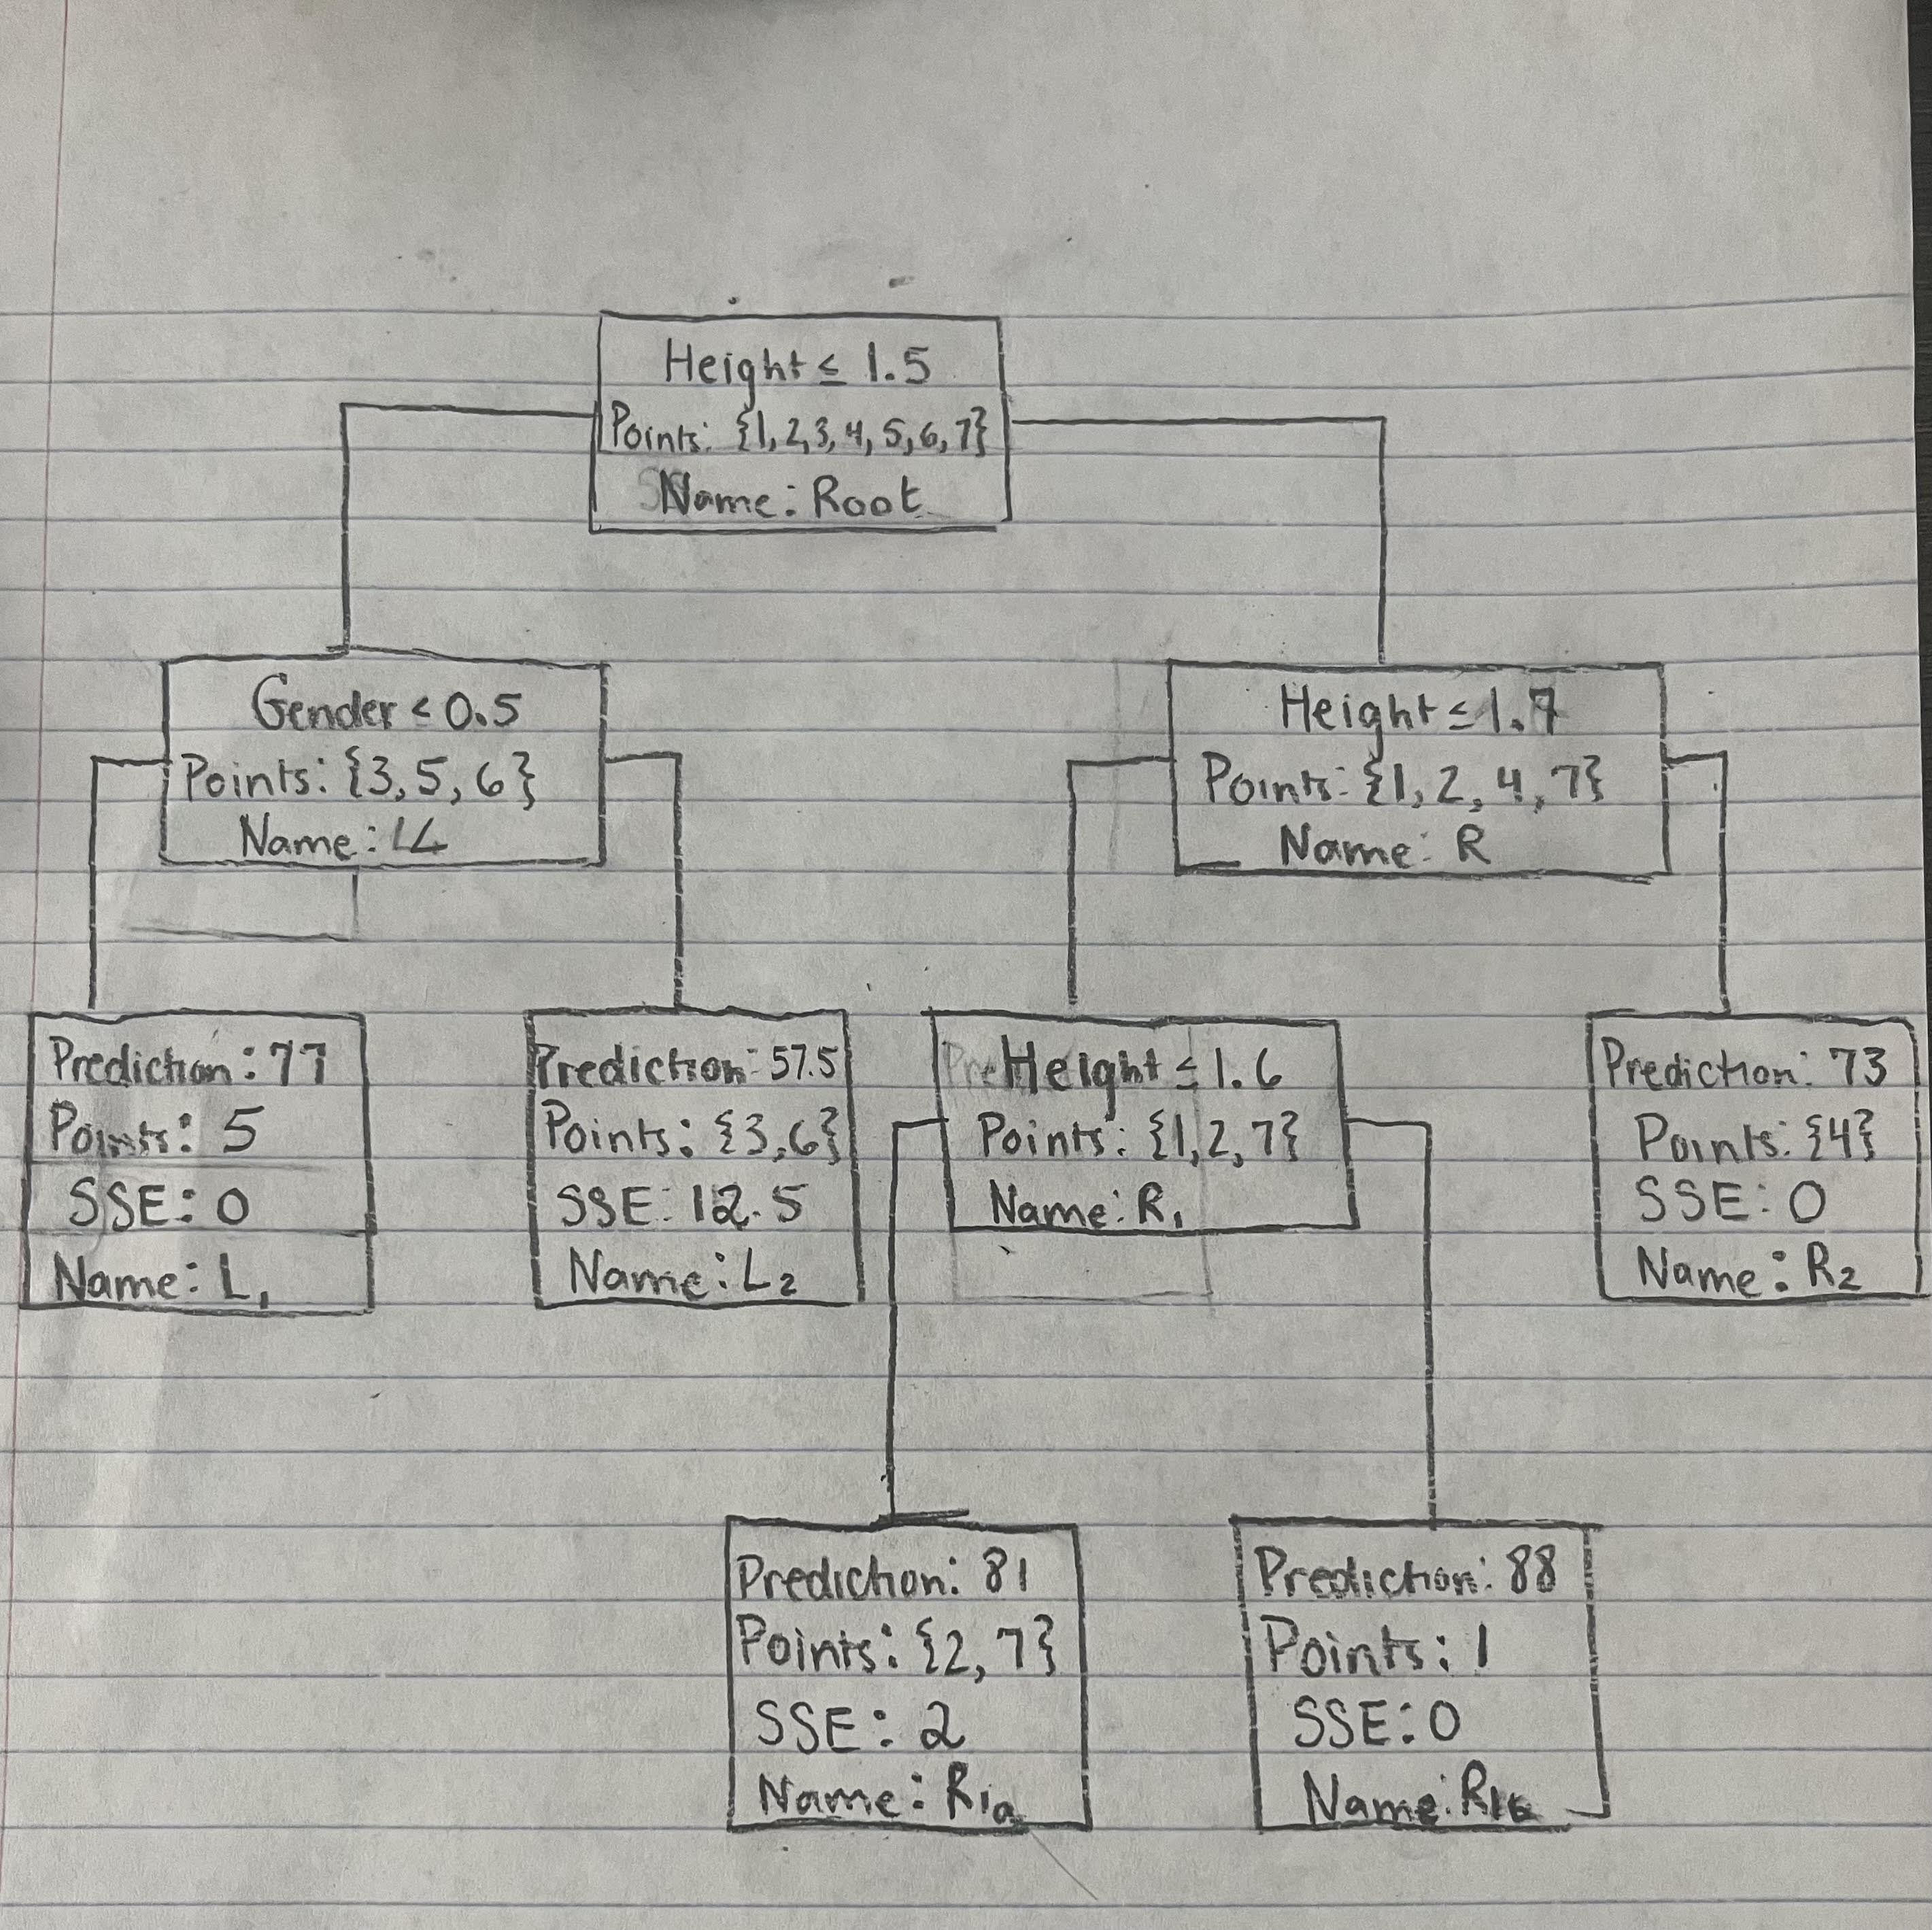 Height ≤ 1.5
Points: {1, 2, 3, 4, 5, 6, 7}
Name: Root
Gender < 0.5
Points: {3, 5, 6}
Name: L
Height ≤ 1.7
Points: {1, 2, 4, 7}
Name: R
Prediction: 77
Points: 5
SSE: 0
Name: L₁
Prediction: 57.5
Points: {3, 6}
SSE: 12.5
Name: L₂
Height ≤ 1.6
Points: {1, 2, 7}
Name: R₁
Prediction: 73
Points: {4}
SSE: 0
Name: R₂
Prediction: 81
Points: {2, 7}
SSE: 2
Name: R₁ₐ
Prediction: 88
Points: 1
SSE: 0
Name: